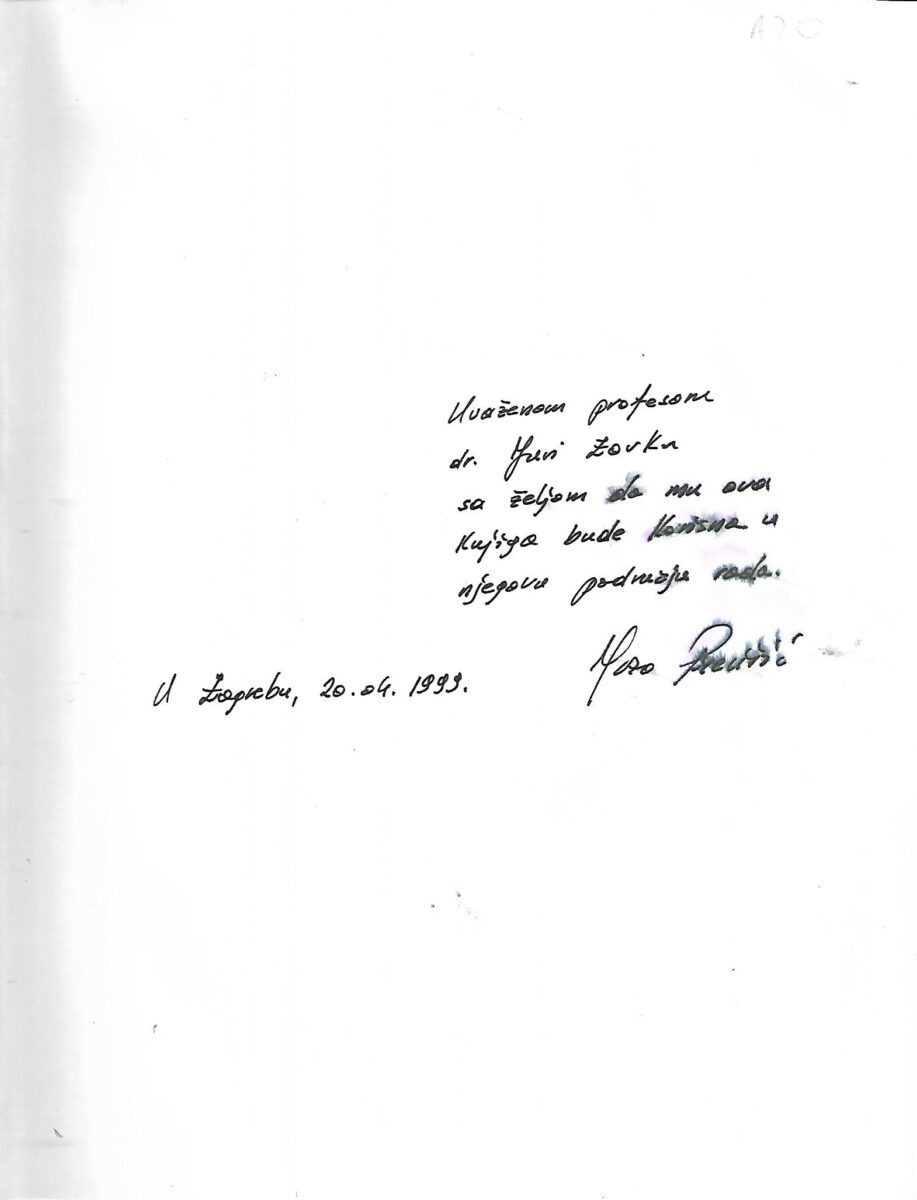 A20
Uvaženom profesoru
dr. Juri Zovku
sa željom da mu ova
knjiga bude korisna u
njegovu području rada.
U Zagrebu, 20.04.1999.